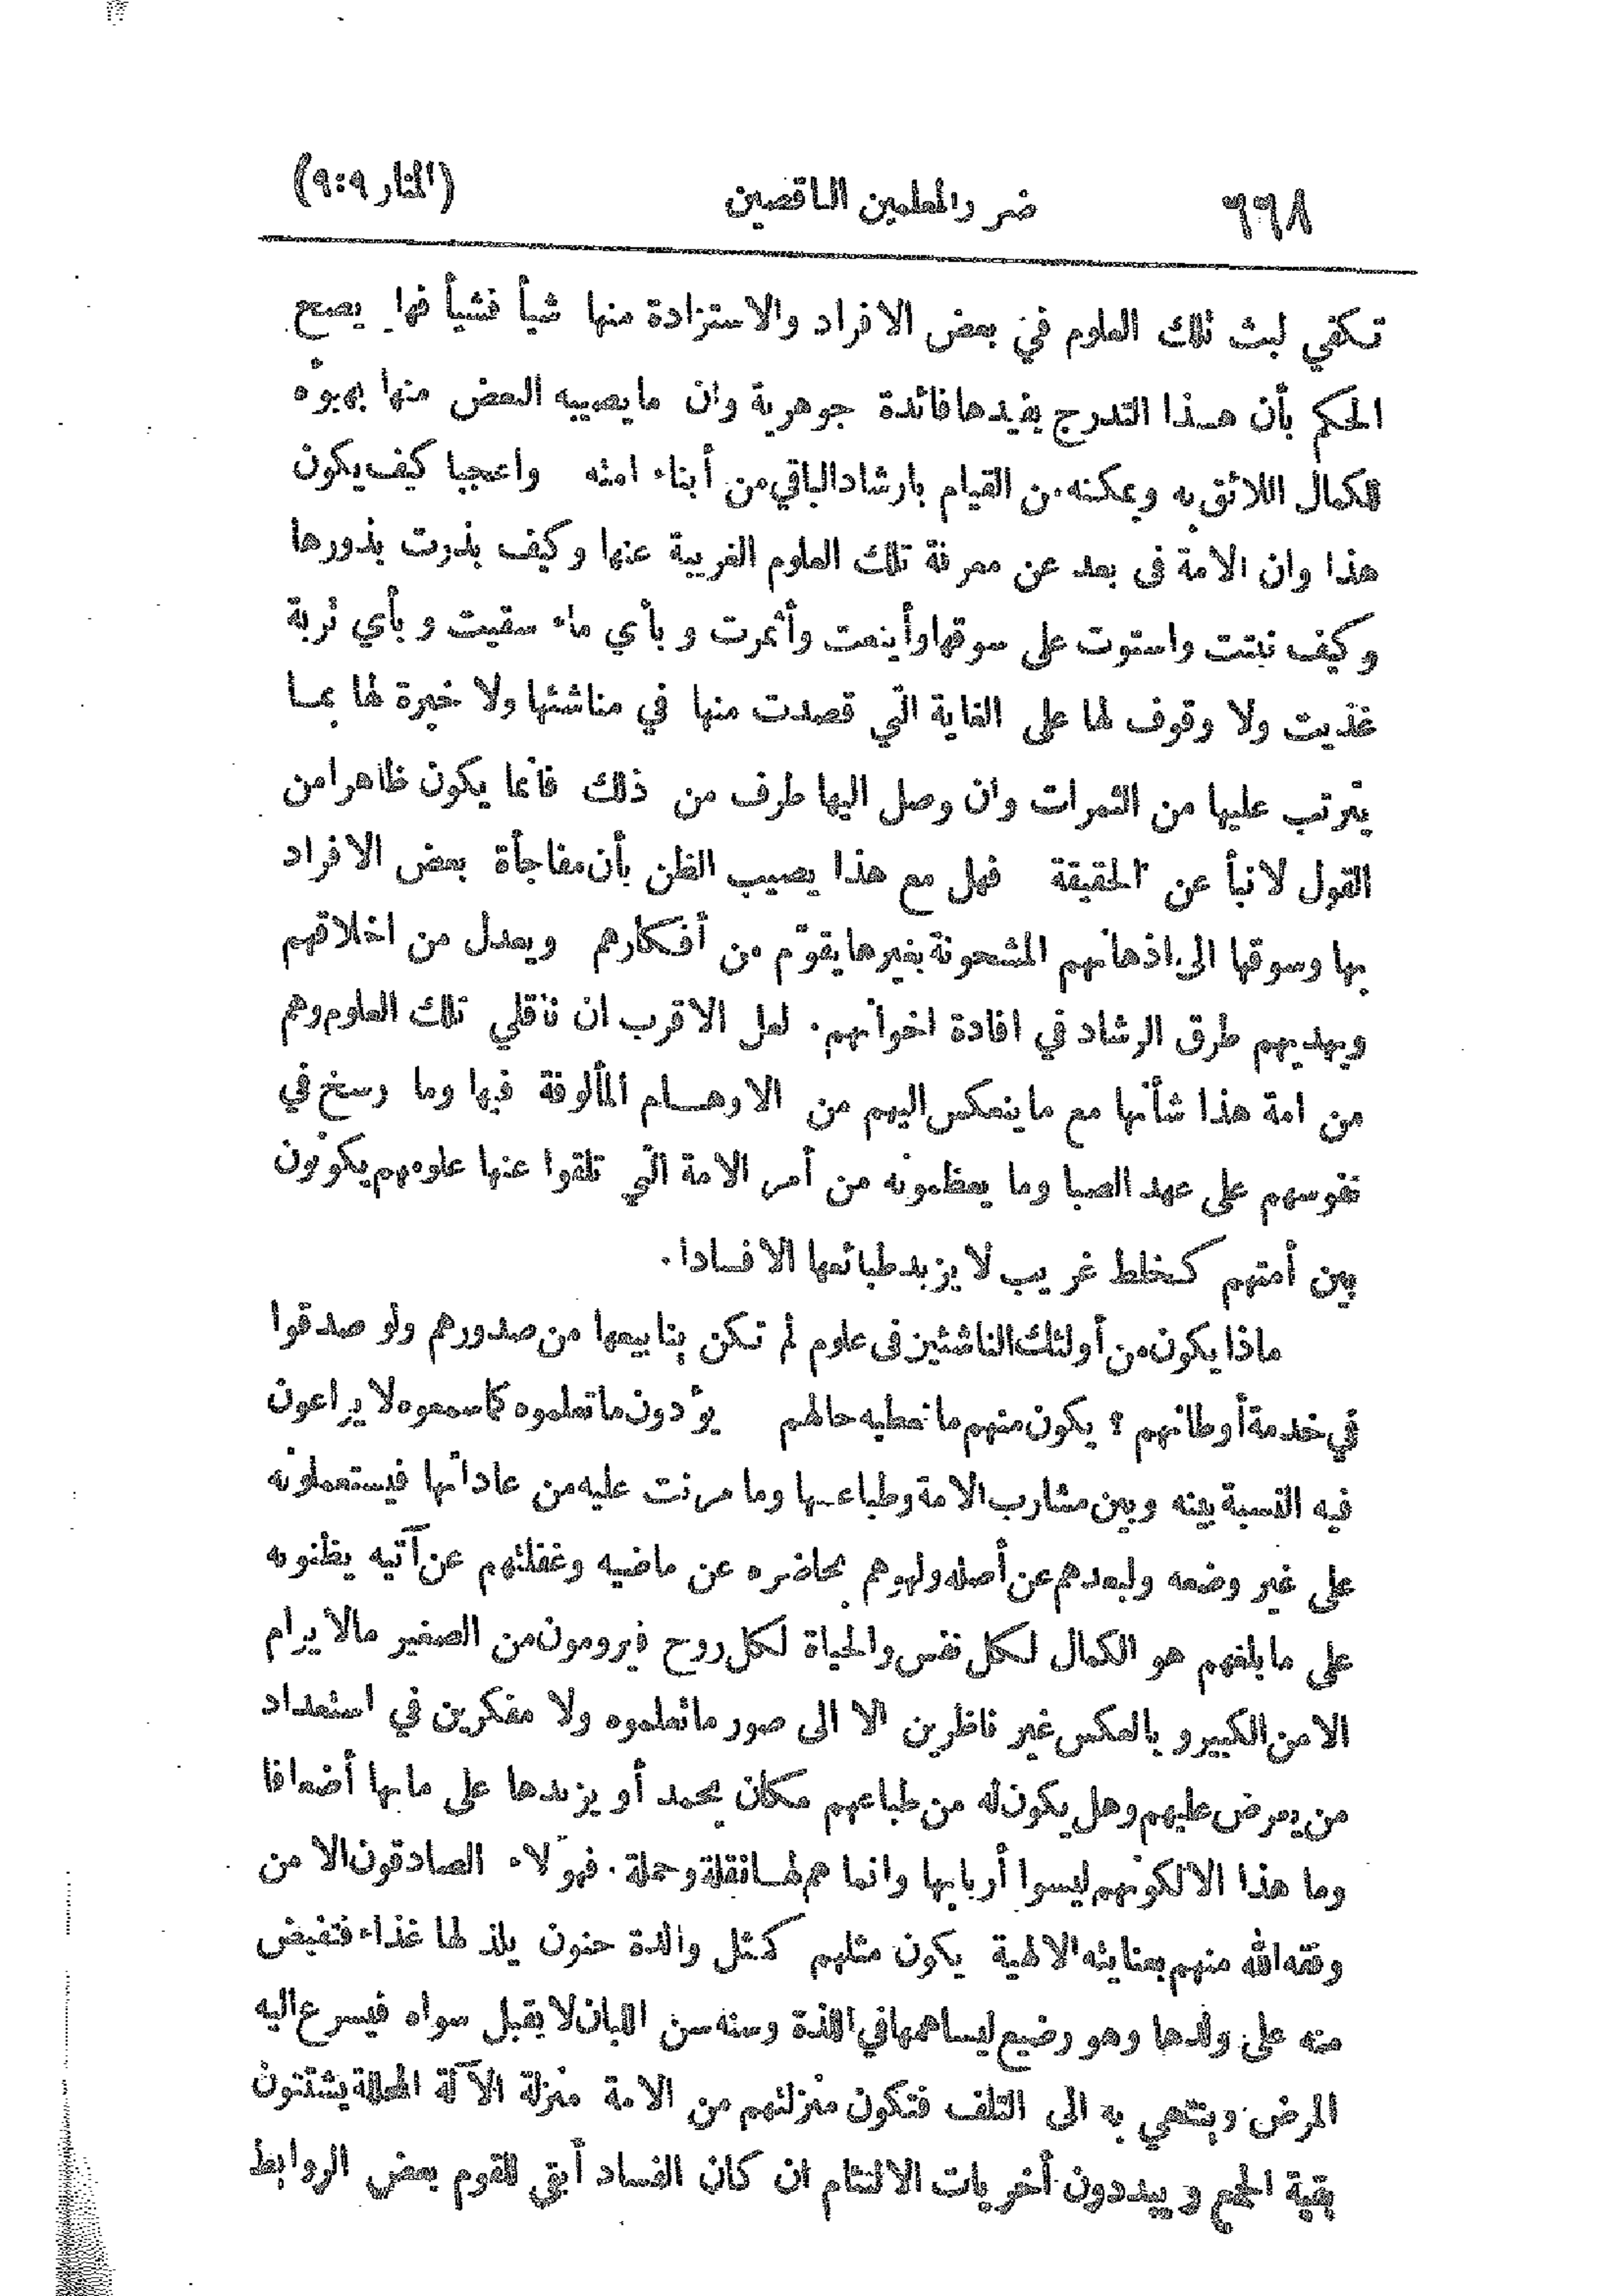 ٦٦٨ ضرر والمعلمين الناقصين (المنار ٩:٩)
تكفي لبث تلك العلوم في بعض الافراد والاستزادة منها شيأ فشيأ فهل يصح
الحكم بأن هذا التدرج يفيدها فائدة جوهرية وان ما يصيبه البعض منها يهيؤه
للكمال اللائق به ويمكنه من القيام بارشاد الباقي من أبناء امته واعجبا كيف يكون
هذا وان الامة فى بعد عن معرفة تلك العلوم الغريبة عنها وكيف بذرت بذورها
وكيف نبتت واستوت على سوقها وأينعت وأثمرت وبأي ماء سقيت وبأي تربة
غذيت ولا وقوف لها على الغاية التي قصدت منها في مناشئها ولا خبرة لها بما
يترتب عليها من الثمرات وان وصل اليها طرف من ذلك فانما يكون ظاهرا من
القول لا نبأ عن الحقيقة فهل مع هذا يصيب الظن بأن مفاجأة بعض الافراد
بها وسوقها الى اذهانهم المشحونة بغيرها يقوّم من أفكارهم ويعدل من اخلاقهم
ويهديهم طرق الرشاد في افادة اخوانهم. لعل الاقرب ان ناقلي تلك العلوم وهم
من امة هذا شأنها مع ما ينعكس اليهم من الاوهام المألوفة فيها وما رسخ في
نفوسهم على عهد الصبا وما يعظمونه من أمر الامة التي تلقوا عنها علومهم يكونون
بين أمتهم كخلط غريب لا يزيد طبائعها الا فسادا.
ماذا يكون من أولئك الناشئين فى علوم لم تكن ينابيعها من صدورهم ولو صدقوا
في خدمة أوطانهم ؟ يكون منهم ما تعطيه حالهم يؤدون ما تعلموه كما سمعوه لا يراعون
فيه النسبة بينه وبين مشارب الامة وطباعها وما مرنت عليه من عاداتها فيستعملونه
على غير وضعه ولبعدهم عن أصله ولهوهم بحاضره عن ماضيه وغفلتهم عن آتيه يظنونه
على ما بلغهم هو الكمال لكل نفس والحياة لكل روح فيرومون من الصغير مالا يرام
الا من الكبير و بالعكس غير ناظرين الا الى صور ما تعلموه ولا مفكرين في استعداد
من يعرض عليهم وهل يكون له من طباعهم مكان يحمد أو يزيدها على ما بها أضعافا
وما هذا الا لكونهم ليسوا أربابها وانما هم لها نقلة وحملة. فهؤلاء الصادقون الا من
وفقه الله منهم بعنايته الالهية يكون مثلهم كمثل والدة حنون يلذ لها غذاء فتفيض
منه على ولدها وهو رضيع ليساهمها في اللذة وسنه سن اللبان لا يقبل سواه فيسرع اليه
المرض وينتهي به الى التلف فتكون منزلتهم من الامة منزلة الآلة المحللة يشتتون
بقية الجمع ويبددون أخريات الالتئام ان كان الفساد أبقى للقوم بعض الروابط